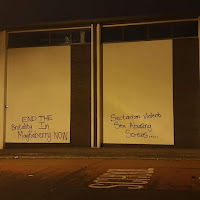 END THE
Brutality In
Maghaberry NOW
Sectarian Violent
Sex Abusing
Screws....